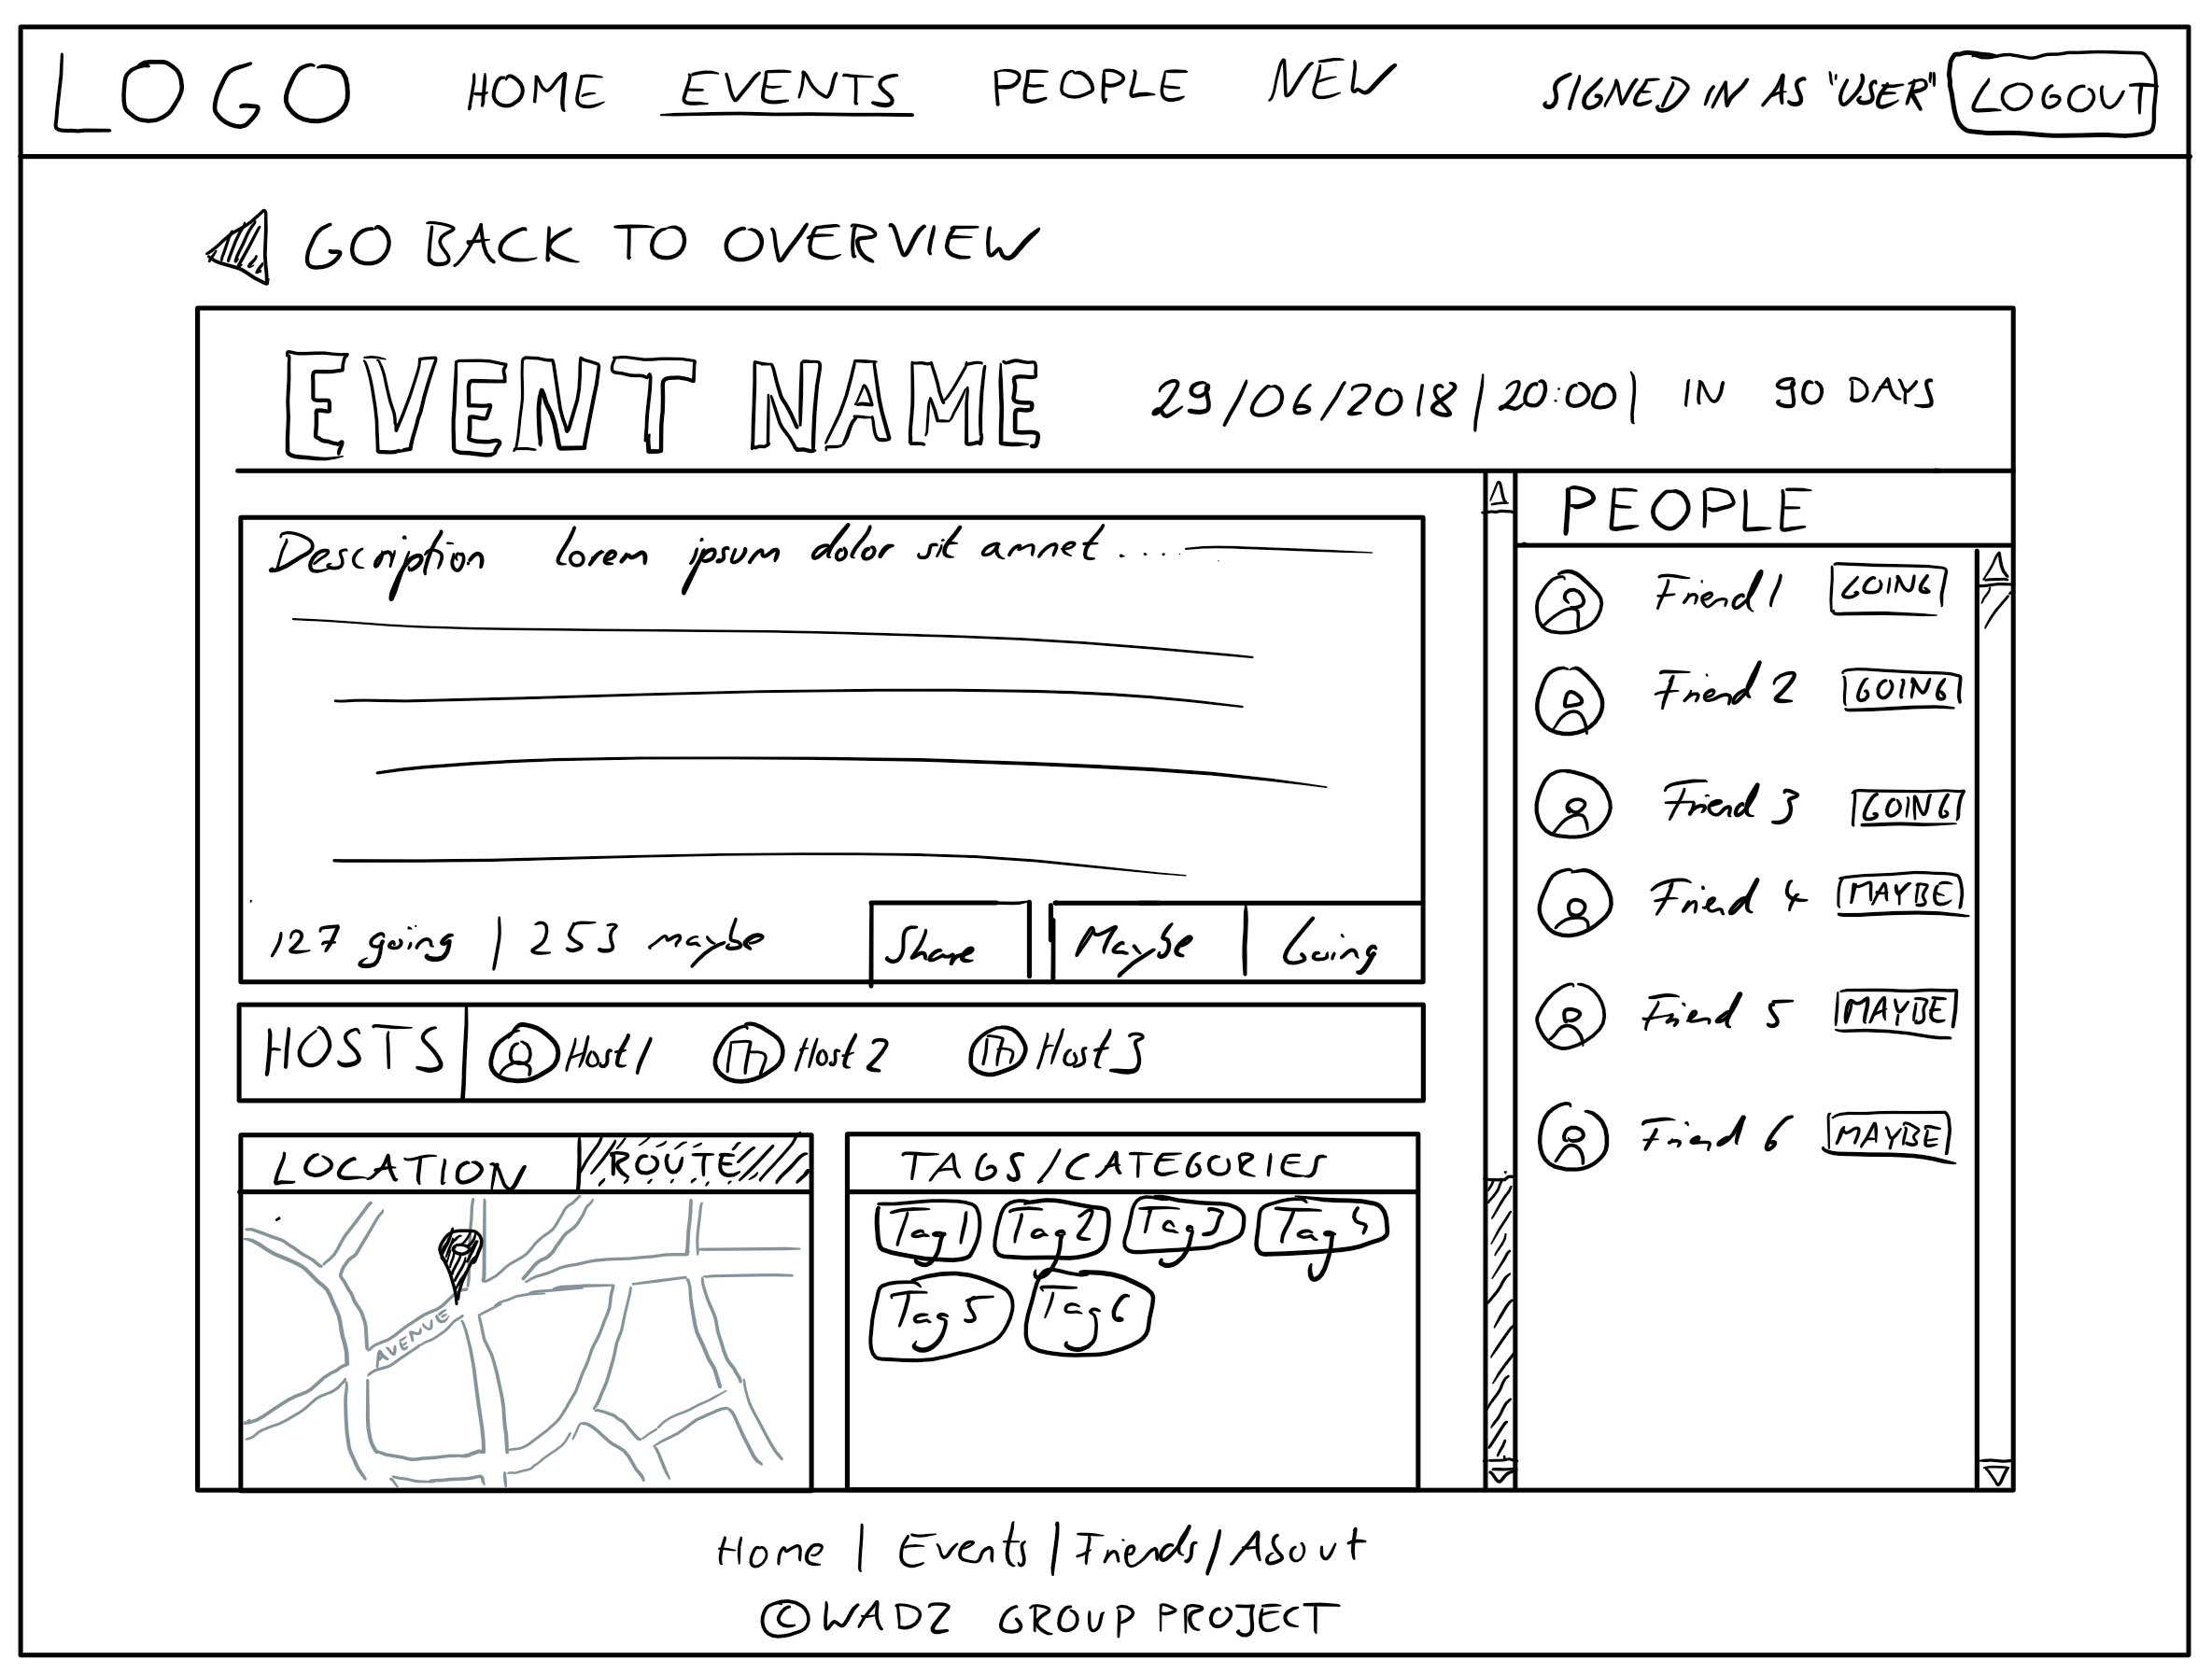 LOGO HOME EVENTS PEOPLE NEW SIGNED IN AS "USER" LOGOUT
GO BACK TO OVERVIEW
EVENT NAME 29/06/2018 | 20:00 | IN 90 DAYS
Description lorem ipsum dolor sit amnet....
127 going | 253 maybe Share Maybe | Going
HOSTS Host 1 Host 2 Host 3
LOCATION ROUTE
AVENUE
TAGS/CATEGORIES
Tag 1 Tag 2 Tag 3 Tag 4
Tag 5 Tag 6
PEOPLE
Friend 1 GOING
Friend 2 GOING
Friend 3 GOING
Friend 4 MAYBE
Friend 5 MAYBE
Friend 6 MAYBE
Home | Events | Friends / About
© WAD2 GROUP PROJECT